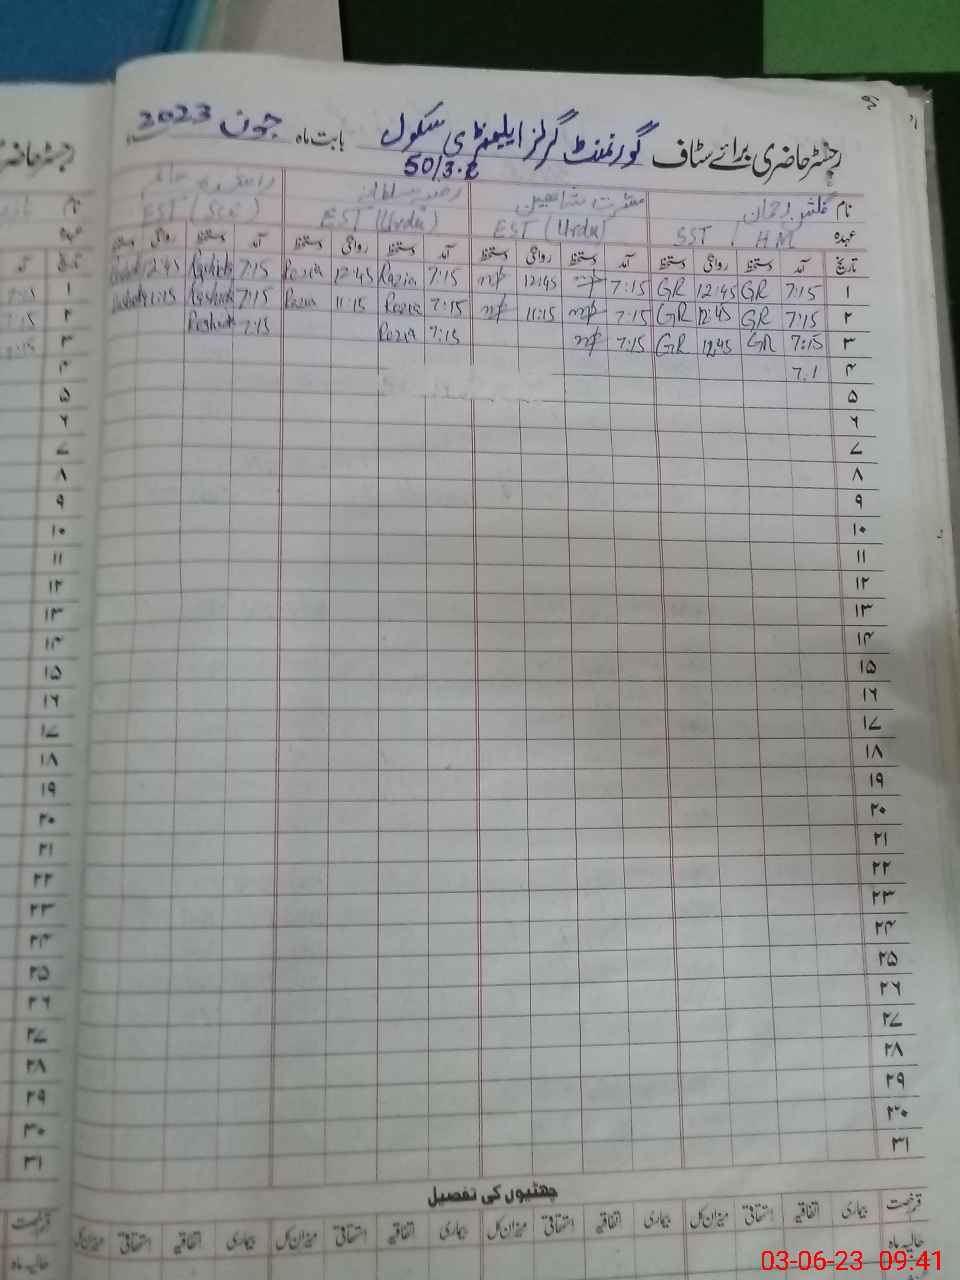 رجسٹر حاضری برائے سٹاف گورنمنٹ گرلز ایلیمنٹری سکول بابت ماہ جون 2023
50/3.R
نام گلشن رحمان مسرت شاہین رضیہ سلطانہ
عہدہ SST / HM EST (Urdu) EST (Urdu) EST (Sci)
تاریخ آمد دستخط روانگی دستخط آمد دستخط روانگی دستخط آمد دستخط روانگی دستخط آمد دستخط روانگی دستخط
۱ 7:15 GR 12:45 GR 7:15 12:45 7:15 Razia 12:45 Razia 7:15 Rashida 12:45
۲ 7:15 GR 12:45 GR 7:15 11:15 7:15 Razia 11:15 Razia 7:15 Rashida 11:15
۳ 7:15 GR 12:45 GR 7:15 7:15 Razia 7:15 Rashida
۴ 7.1
۵
۶
۷
۸
۹
۱۰
۱۱
۱۲
۱۳
۱۴
۱۵
۱۶
۱۷
۱۸
۱۹
۲۰
۲۱
۲۲
۲۳
۲۴
۲۵
۲۶
۲۷
۲۸
۲۹
۳۰
۳۱
چھٹیوں کی تفصیل
قرخصت بیماری اتفاقیہ استحقاقی میزان کل بیماری اتفاقیہ استحقاقی میزان کل بیماری اتفاقیہ استحقاقی میزان کل بیماری اتفاقیہ استحقاقی میزان کل
حالیہ ماہ
03-06-23 09:41